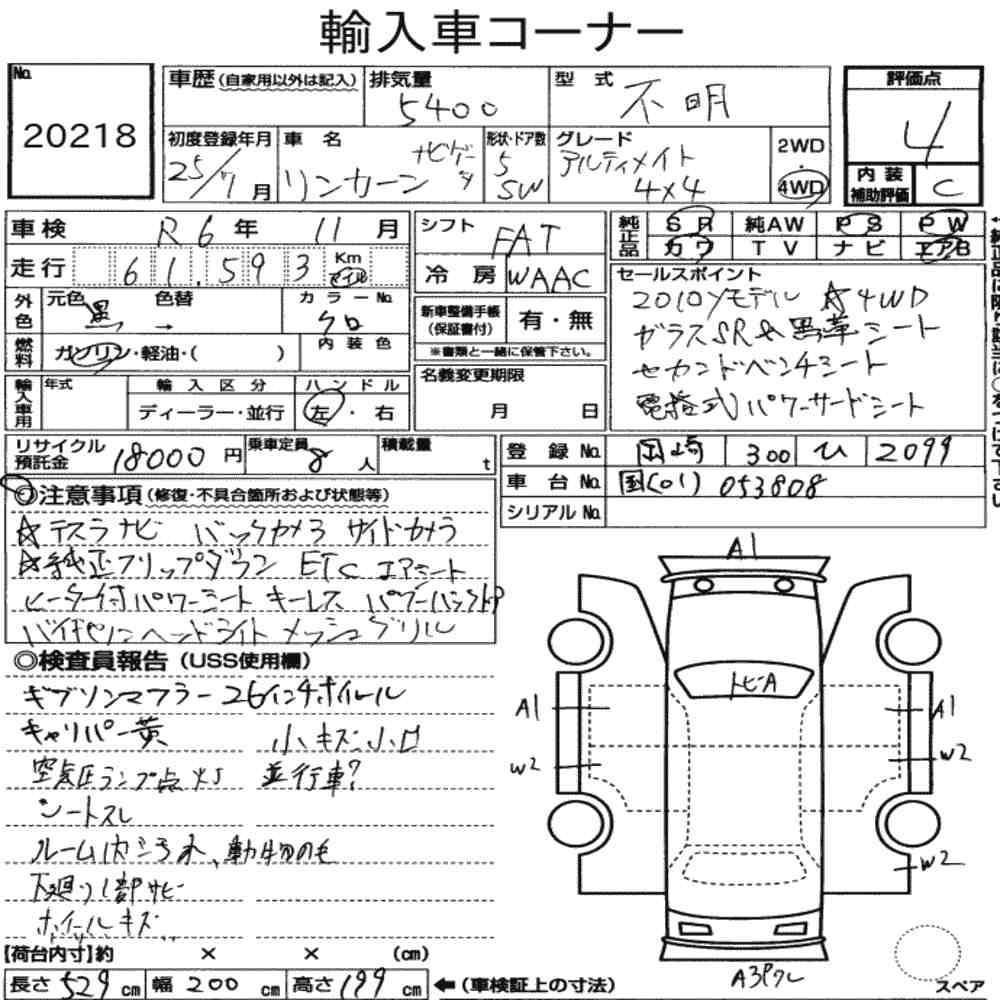 輸入車コーナー
No. 20218
車歴 (自家用以外は記入) 排気量 5400 型式 不明 評価点 4
初度登録年月 25/7 月 車名 リンカーン ナビゲータ 形状・ドア数 5 SW グレード アルティメイト 4×4 2WD・4WD 内装補助評価 C
車検 R 6 年 11 月 シフト FAT 純正品 SR 純AW PS PW
カワ TV ナビ エアB
走行 61,593 Km マイル 冷房 WAAC セールスポイント
2010yモデル ☆4WD
ガラスSR & 黒革シート
セカンドベンチシート
電格式 パワーサードシート
外色 元色 黒 → 色替 カラーNo. クロ 新車整備手帳(保証書付) 有・無
内装色 ※書類と一緒に保管下さい。
燃料 ガソリン・軽油・( ) 名義変更期限 月 日
輸入車用 年式 輸入区分 ハンドル
ディーラー・並行 左・右
リサイクル預託金 18000 円 乗車定員 8 人 積載量 t 登録No. 岡崎 300 ひ 2099
車台No. 国(01) 053808
シリアルNo.
◎注意事項 (修復・不具合箇所および状態等)
☆テスラナビ バックカメラ サイドカメラ
☆純正フリップダウン ETC エアシート
ヒーター付パワーシート キーレス パワーバックドア
ヘッドライト メッシュグリル
◎検査員報告 (USS使用欄)
ギブソンマフラー 26インチホイール
キャリパー黄 小キズ、小凹
空気圧ランプ点灯 並行車?
シートスレ
ルーム内シミ汚れ、動物の毛
下廻り1部サビ
ホイールキズ
【荷台内寸】約 × × (cm)
長さ 529 cm 幅 200 cm 高さ 199 cm ←(車検証上の寸法)
A1
トビA
A1 A1
W2 W2
W2
A3Pクレ
スペア